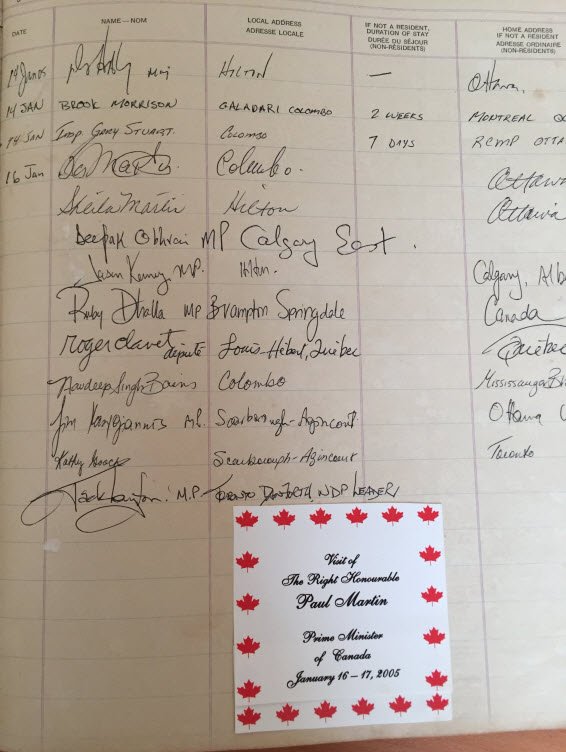 DATE
NAME—NOM
LOCAL ADDRESS
ADRESSE LOCALE
IF NOT A RESIDENT,
DURATION OF STAY
DURÉE DU SÉJOUR
(NON-RÉSIDENTS)
HOME ADDRESS
IF NOT A RESIDENT
ADRESSE ORDINAIRE
(NON-RÉSIDENTS)
HILTON — Ottawa,
14 JAN BROOK MORRISON GALADARI COLOMBO 2 WEEKS MONTREAL
14 JAN Insp. Gary Stuart. COLOMBO 7 DAYS RCMP OTTA
16 Jan Martin Colombo. Ottawa
Sheila Martin Hilton Ottawa
Deepak Obhrai MP Calgary East.
Jason Kenney, M.P. Hilton. Calgary, Alb
Ruby Dhalla MP Brampton Springdale Canada
Roger Clavet député Louis-Hébert, Québec Québec
Navdeep Singh Bains Colombo Mississauga
Jim Karygiannis M.P. Scarborough-Agincourt Ottawa
Kathy Scarborough-Agincourt Toronto
Jack Layton M.P. Toronto Danforth NDP Leader
Visit of
The Right Honourable
Paul Martin
Prime Minister
of Canada
January 16 – 17, 2005